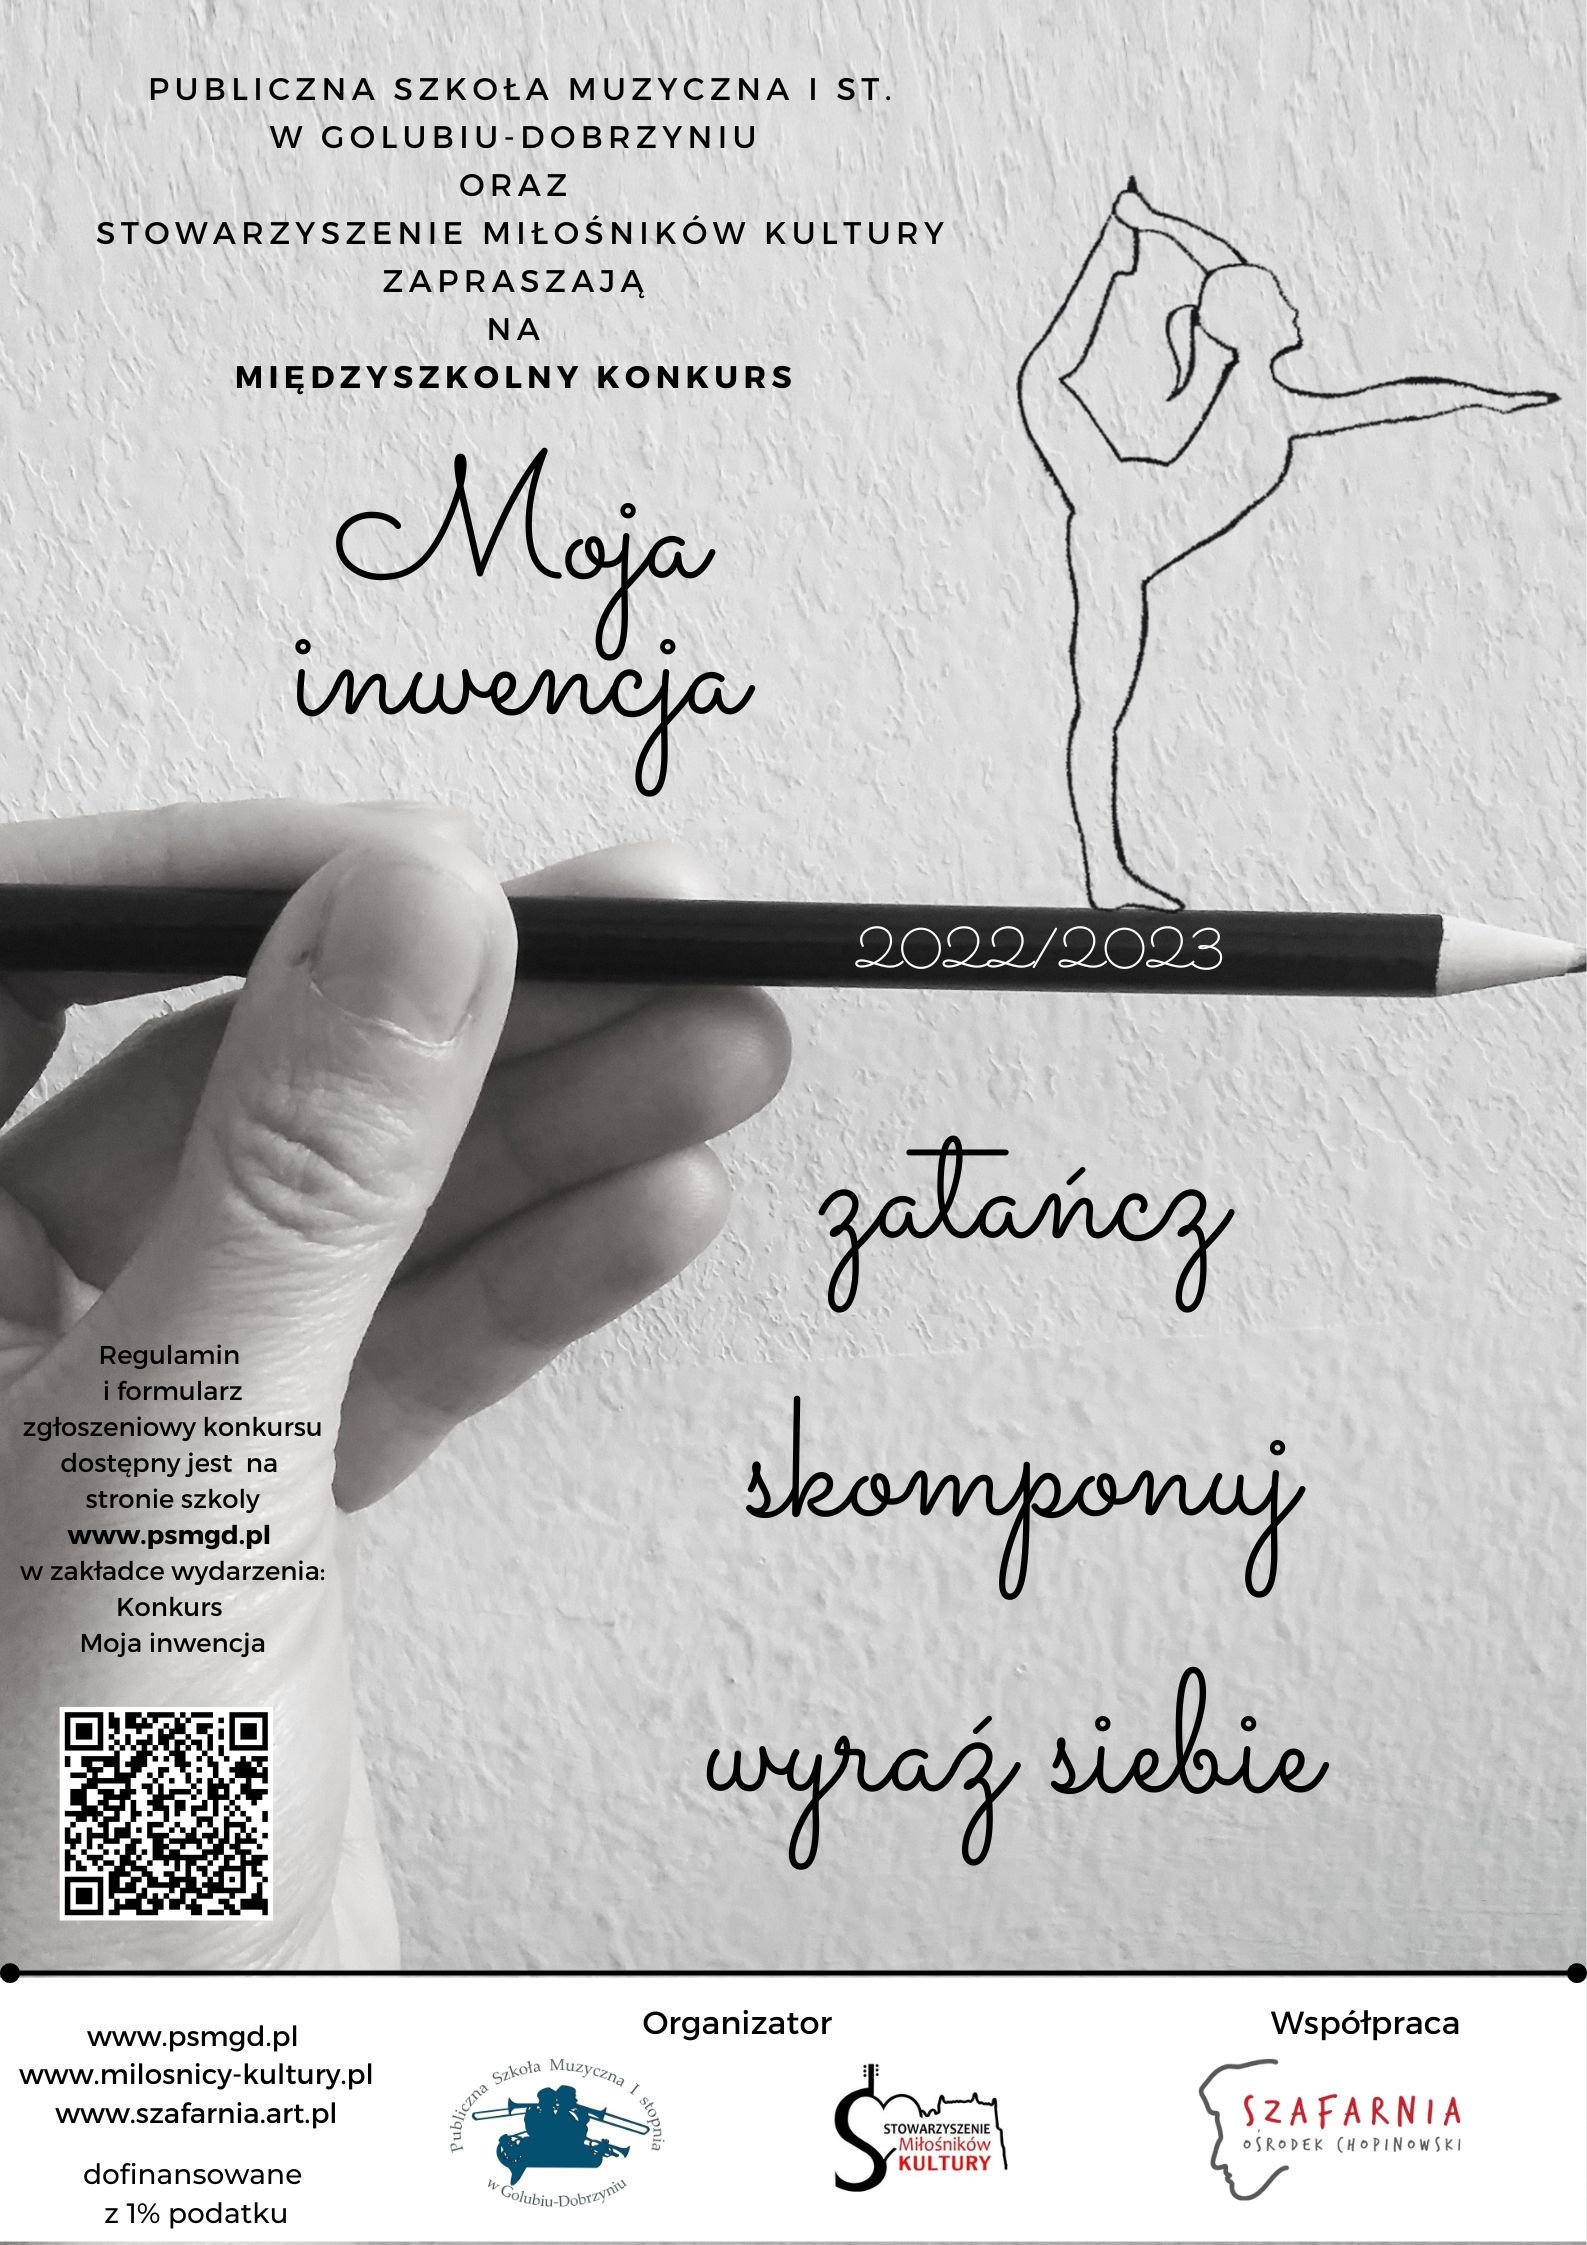 PUBLICZNA SZKOŁA MUZYCZNA I ST.
W GOLUBIU-DOBRZYNIU
ORAZ
STOWARZYSZENIE MIŁOŚNIKÓW KULTURY
ZAPRASZAJĄ
NA
MIĘDZYSZKOLNY KONKURS
Moja
inwencja
2022/2023
zatańcz
skomponuj
wyraź siebie
Regulamin
i formularz
zgłoszeniowy konkursu
dostępny jest na
stronie szkoly
www.psmgd.pl
w zakładce wydarzenia:
Konkurs
Moja inwencja
www.psmgd.pl
www.milosnicy-kultury.pl
www.szafarnia.art.pl
dofinansowane
z 1% podatku
Organizator
Publiczna Szkoła Muzyczna I stopnia
w Golubiu-Dobrzyniu
STOWARZYSZENIE
Miłośników
KULTURY
Współpraca
SZAFARNIA
OŚRODEK CHOPINOWSKI